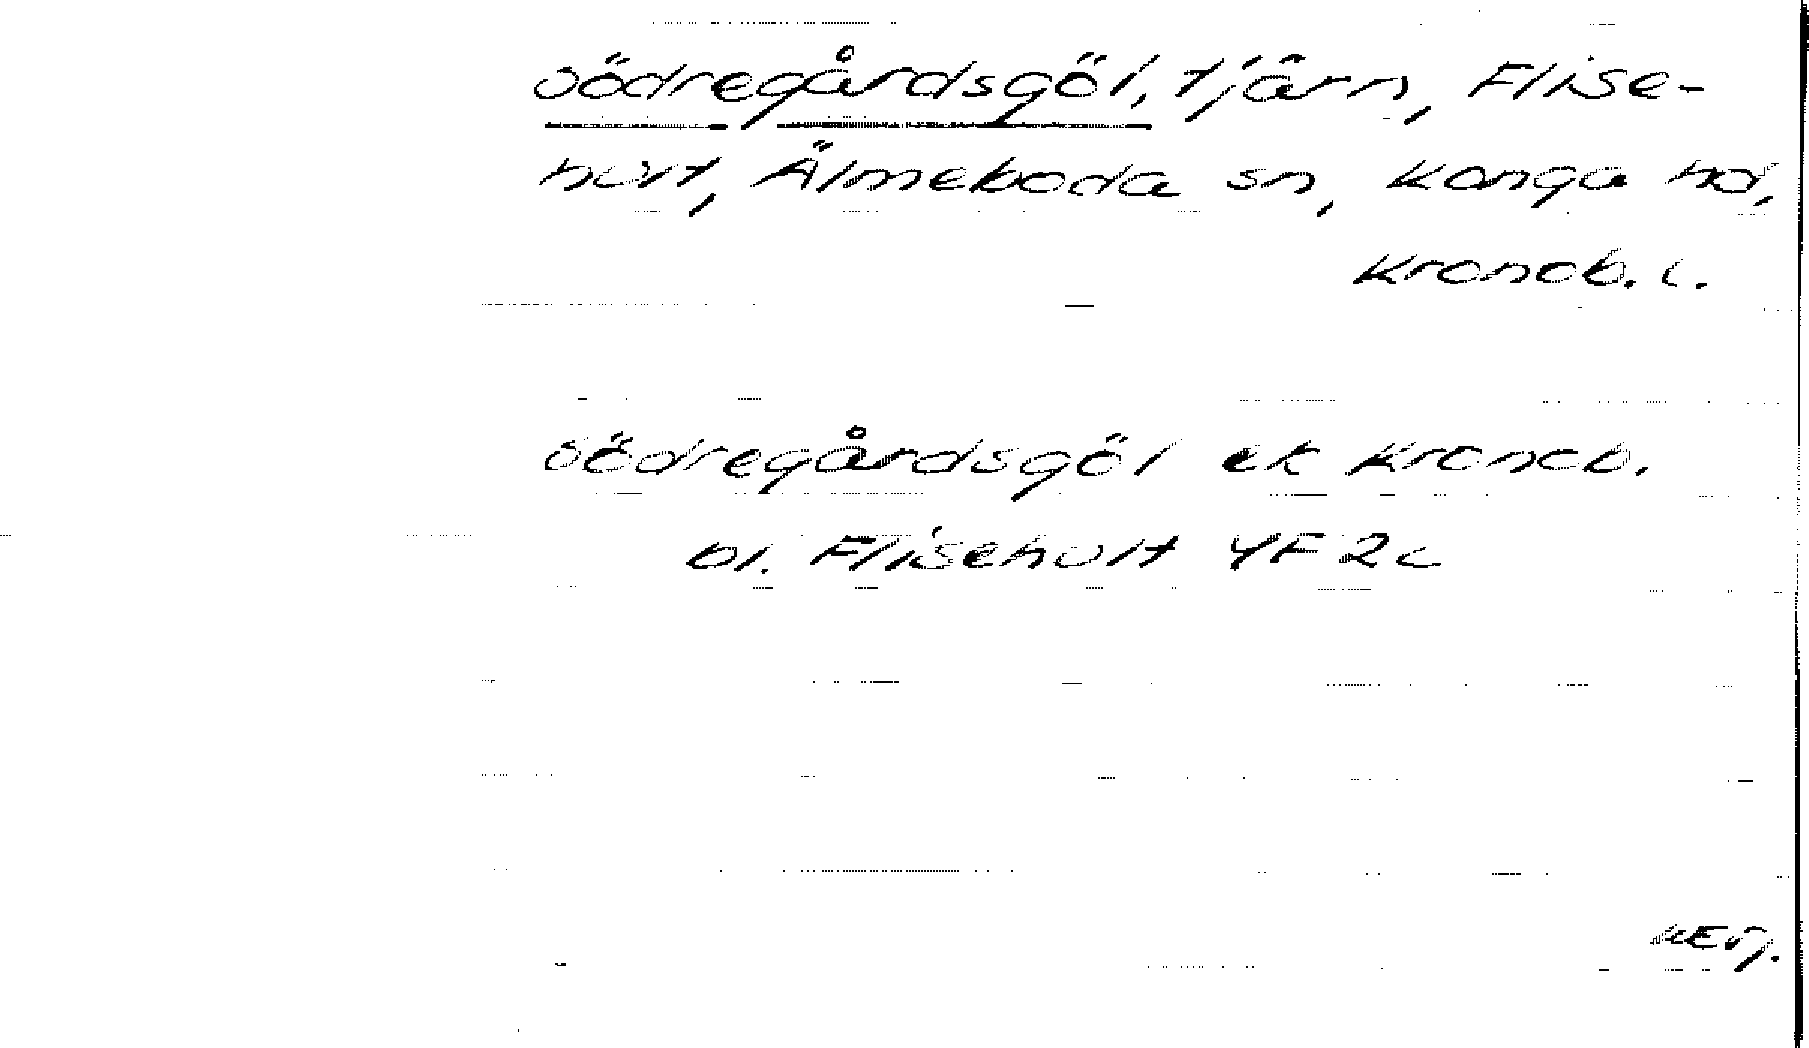 Södregårdsgöl, tjärn, Flise-
hult, Älmeboda sn, Konga hd,
Kronob. l.
Södregårdsgöl ek Kronob.
bl. Flisehult 4F 2c